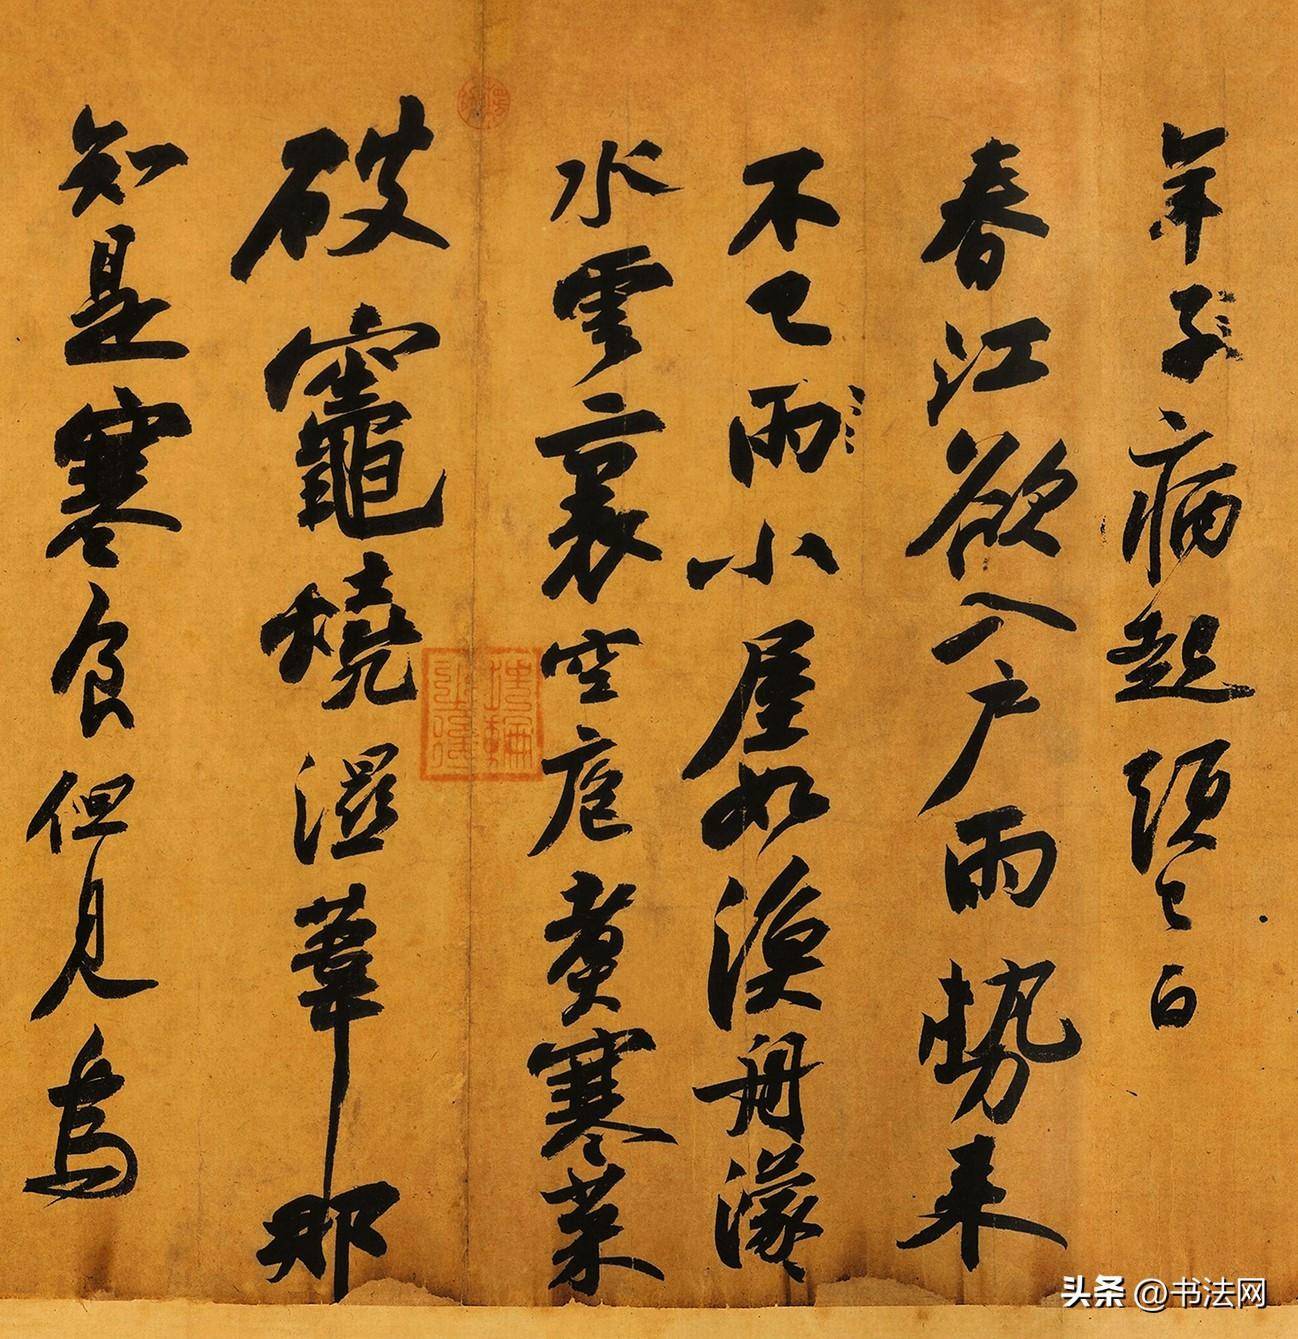 年子病起頭已白
春江欲入戶雨勢來
不已雨小屋如漁舟濛々
水雲裏空庖煮寒菜
破竈燒濕葦那
知是寒食但見烏
头条 @书法网